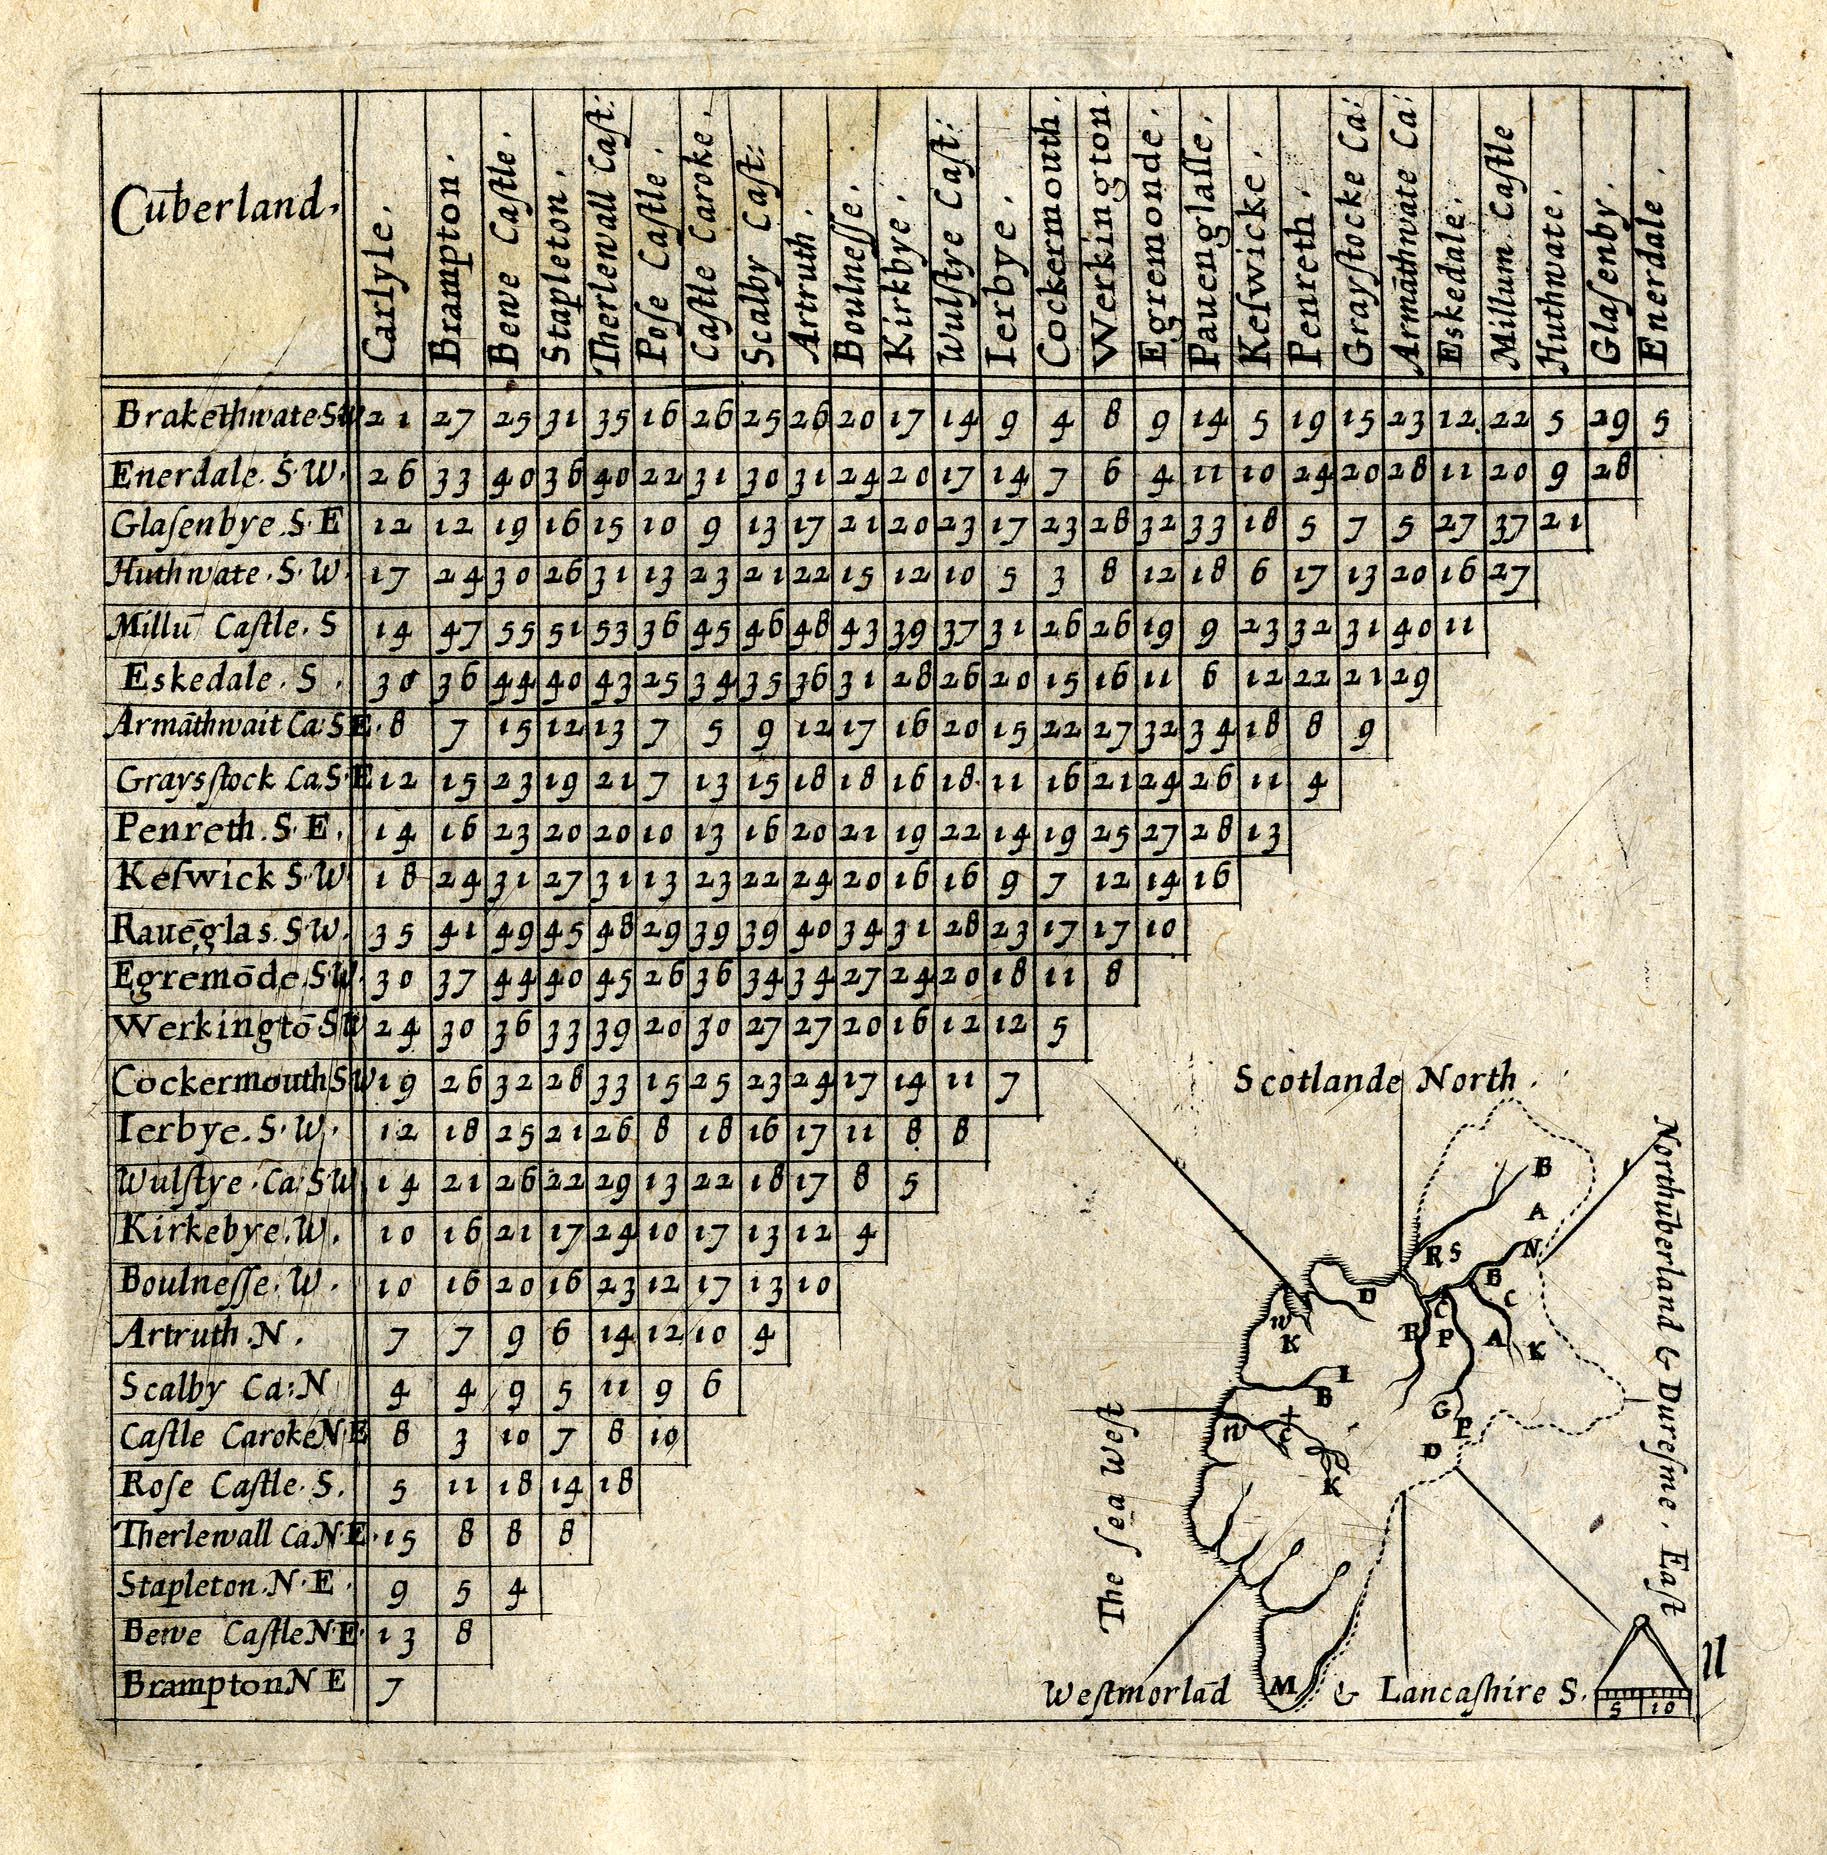 Cūberland.
Carlyle.
Brampton.
Bewe Caſtle.
Stapleton.
Therlewall Caſt:
Poſe Caſtle.
Caſtle Caroke.
Scalby Caſt:
Artruth.
Boulneſſe.
Kirkbye.
Wulſtye Caſt:
Ierbye.
Cockermouth.
Werkington.
Egremonde.
Pauenglaſſe.
Keſwicke.
Penreth.
Grayſtocke Ca:
Armāthwate Ca:
Eskedale.
Millum Caſtle
Huthwate.
Glaſenby.
Enerdale.
Brakethwate SW 21 27 25 31 35 16 26 25 26 20 17 14 9 4 8 9 14 5 19 15 23 12. 22 5 29 5
Enerdale. S. W. 26 33 40 36 40 22 31 30 31 24 20 17 14 7 6 4 11 10 24 20 28 11 20 9 28
Glaſenbye. S. E 12 12 19 16 15 10 9 13 17 21 20 23 17 23 28 32 33 18 5 7 5 27 37 21
Huthwate. S. W. 17 24 30 26 31 13 23 21 22 15 12 10 5 3 8 12 18 6 17 13 20 16 27
Millū Caſtle. S 14 47 55 51 53 36 45 46 48 43 39 37 31 26 26 19 9 23 32 31 40 11
Eskedale. S. 30 36 44 40 43 25 34 35 36 31 28 26 20 15 16 11 6 12 22 21 29
Armāthwait Ca: S E. 8 7 15 12 13 7 5 9 12 17 16 20 15 22 27 32 34 18 8 9
Graysſtock Ca. S. E 12 15 23 19 21 7 13 15 18 18 16 18. 11 16 21 24 26 11 4
Penreth. S. E. 14 16 23 20 20 10 13 16 20 21 19 22 14 19 25 27 28 13
Keſwick S. W. 18 24 31 27 31 13 23 22 24 20 16 16 9 7 12 14 16
Rauēglas. S. W. 35 41 49 45 48 29 39 39 40 34 31 28 23 17 17 10
Egremōde. SW. 30 37 44 40 45 26 36 34 34 27 24 20 18 11 8
Werkingtō SW 24 30 36 33 39 20 30 27 27 20 16 12 12 5
Cockermouth SW 19 26 32 28 33 15 25 23 24 17 14 11 7
Ierbye. S. W. 12 18 25 21 26 8 18 16 17 11 8 8
Wulſtye. Ca: SW 14 21 26 22 29 13 22 18 17 8 5
Kirkebye. W. 10 16 21 17 24 10 17 13 12 4
Boulneſſe. W. 10 16 20 16 23 12 17 13 10
Artruth. N. 7 7 9 6 14 12 10 4
Scalby Ca: N 4 4 9 5 11 9 6
Caſtle Caroke N. E 8 3 10 7 8 10
Roſe Caſtle. S. 5 11 18 14 18
Therlewall Ca. N. E. 15 8 8 8
Stapleton. N. E. 9 5 4
Bewe Caſtle N. E. 13 8
Brampton N E 7
Scotlande North.
Northūberland & Dureſme. Eaſt
The ſea Weſt
Weſtmorlād & Lancaſhire S.
B
A
R S N
B
D C C
W
K R P A K
I
B
G
W C P
D
K
M
5 10
11